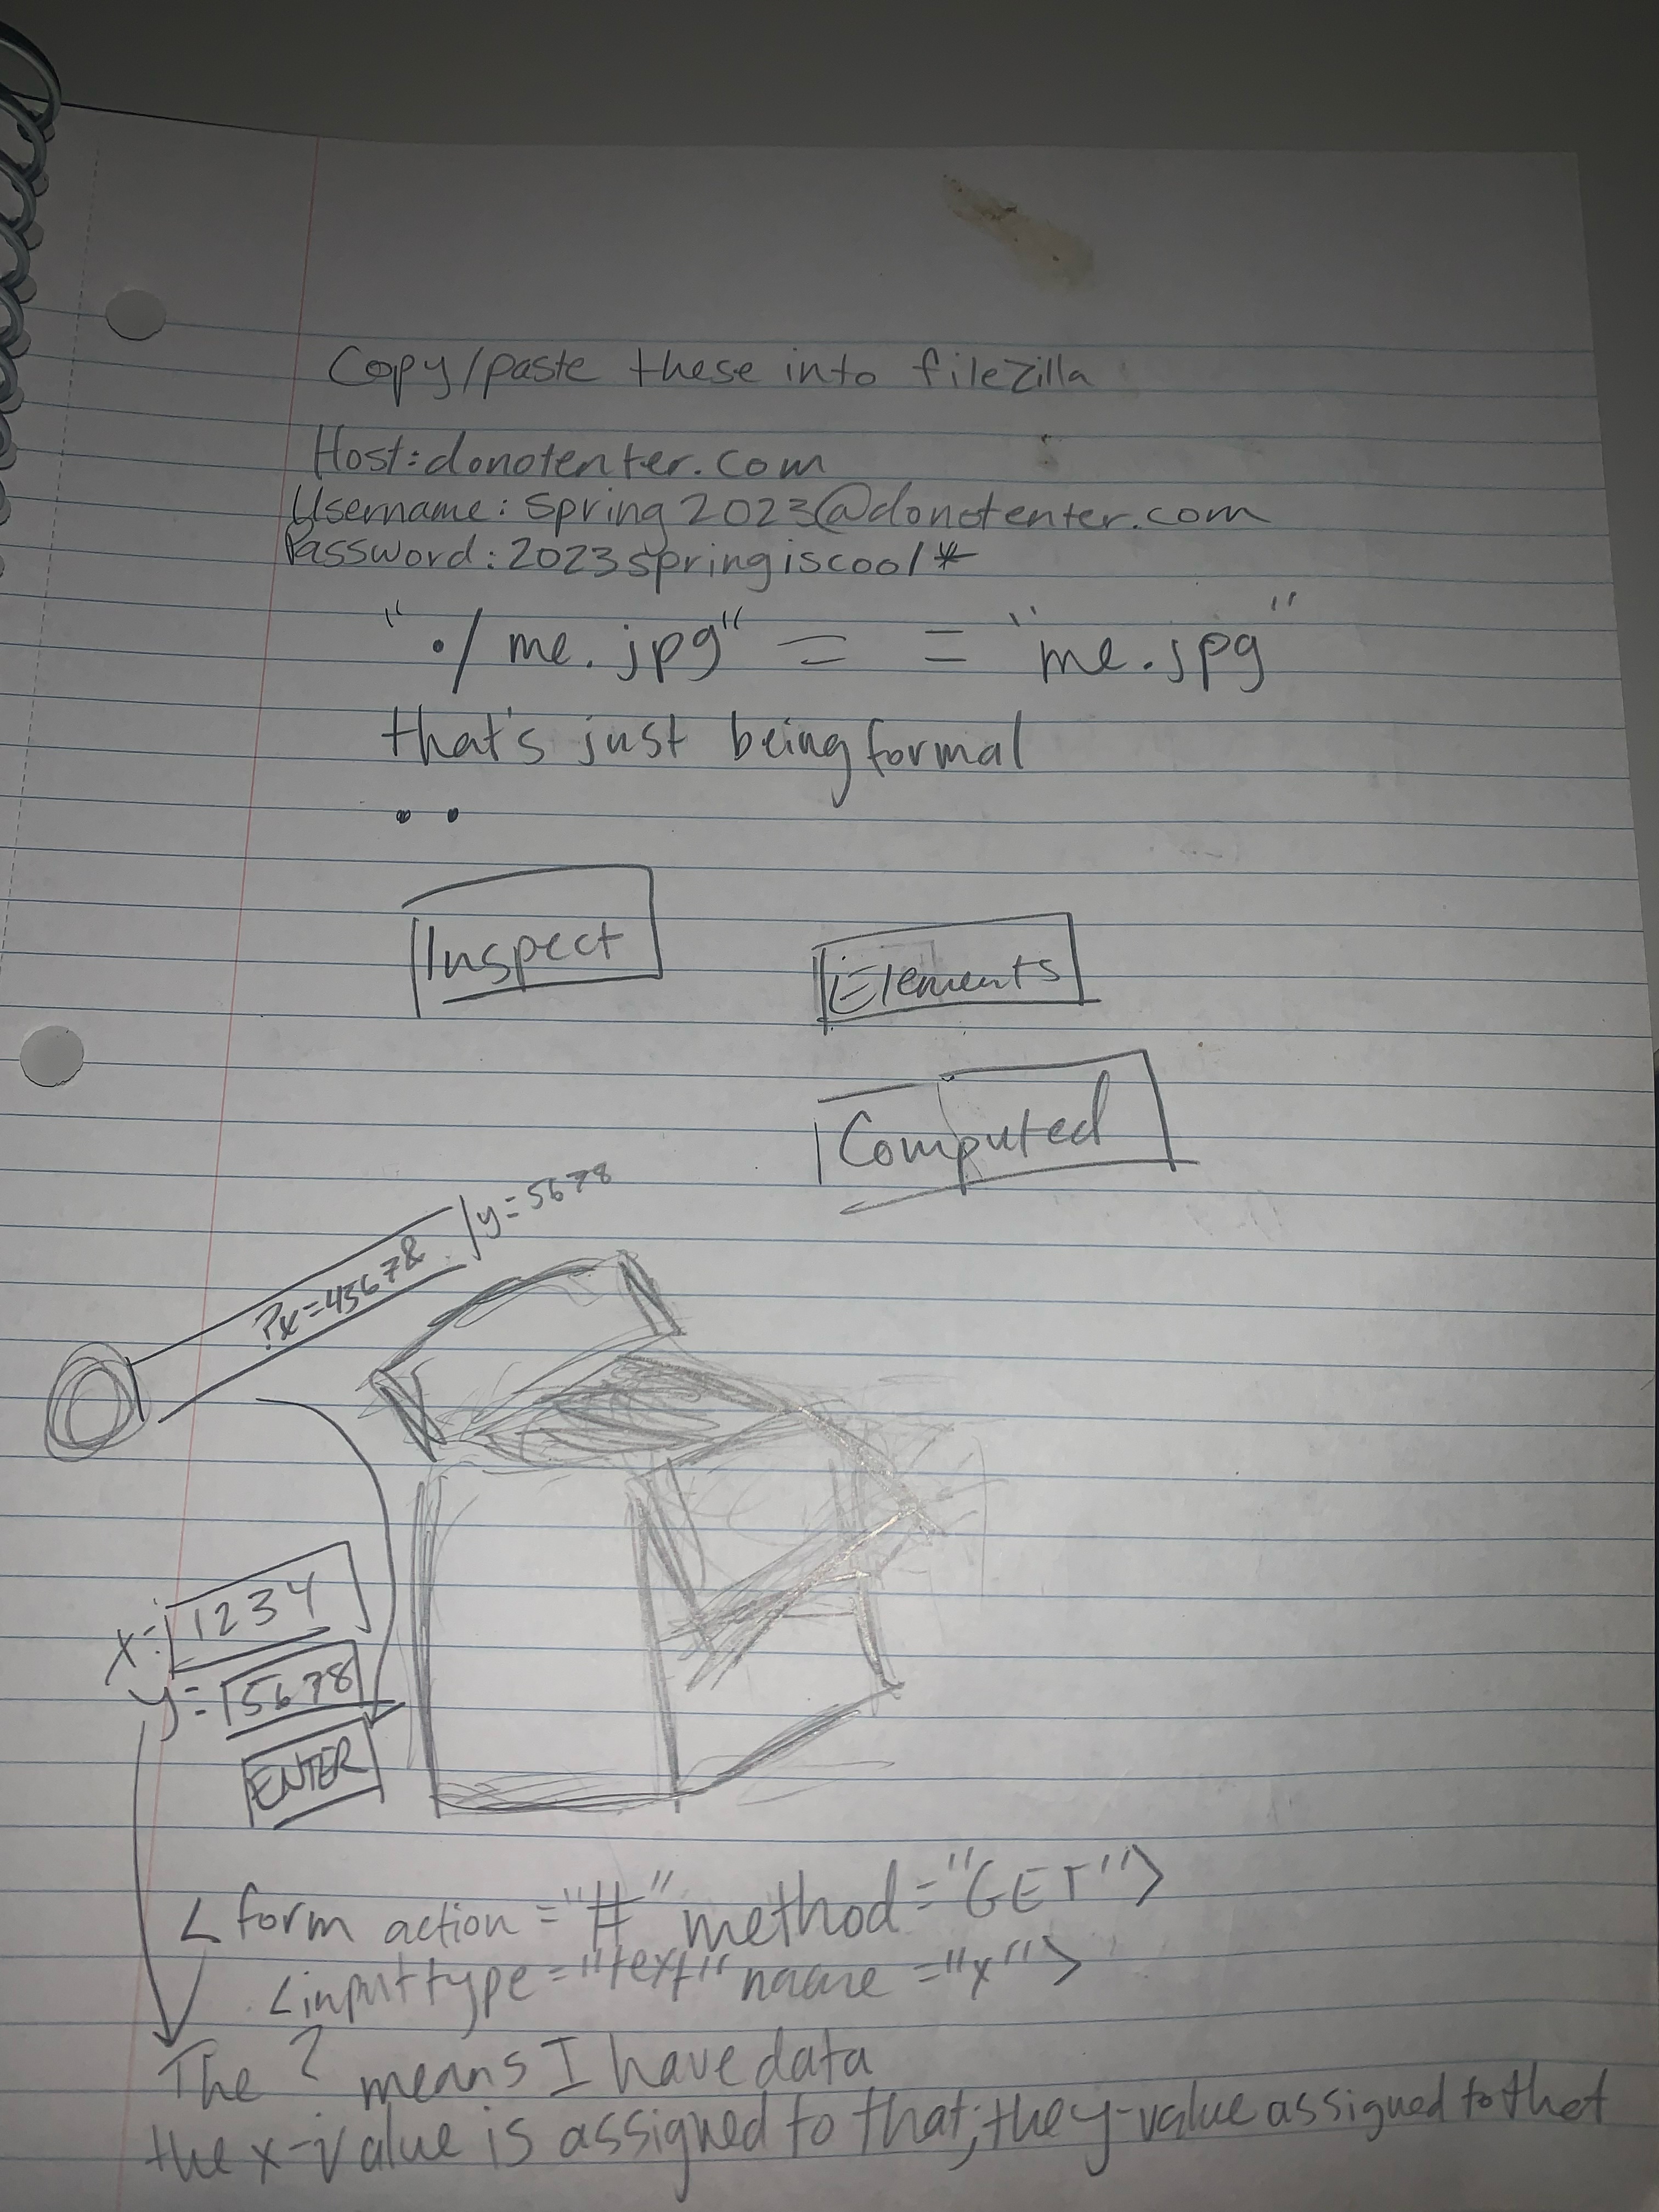 Copy/paste these into filezilla
Host: donotenter.com
Username: spring2023@donotenter.com
Password: 2023springiscool*
"./me.jpg" == "me.jpg"
that's just being formal
..
Inspect
Elements
Computed
?x=45678 /y=5678
x: 1234
y: 5678
ENTER
<form action="#" method="GET">
<input type="text" name="x">
The ? means I have data
the x-value is assigned to that; the y-value assigned to that